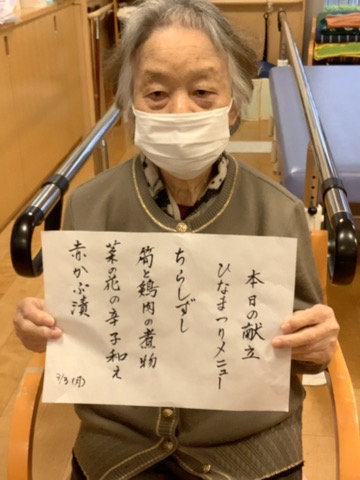 本日の献立
ひなまつりメニュー
ちらしずし
筍と鶏肉の煮物
菜の花の辛子和え
赤かぶ漬
3/3(月)